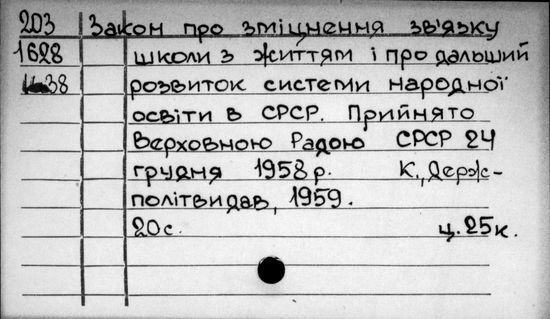 203 Закон про зміцнення зв'язку
1628 школи з життям і про дальший
38 розвиток системи народної
освіти в СРСР. Прийнято
Верховною Радою СРСР 24
грудня 1958 р. К., Держ-
політвидав, 1959.
20 с. ц. 25 к.